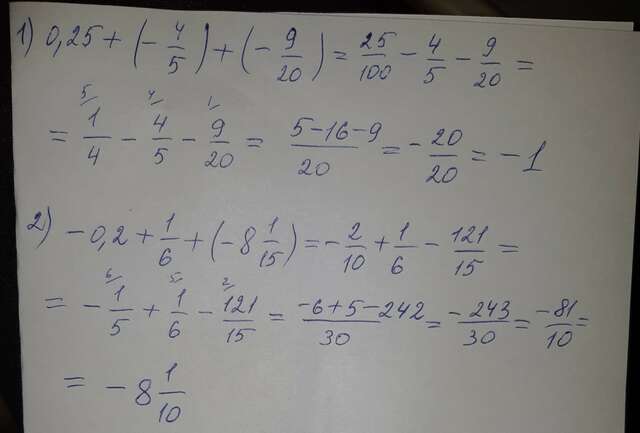 1) 0,25 + (- 4/5) + (- 9/20) = 25/100 - 4/5 - 9/20 =
= 1/4 5/ - 4/5 4/ - 9/20 1/ = (5-16-9)/20 = - 20/20 = - 1
2) -0,2 + 1/6 + (-8 1/15) = - 2/10 + 1/6 - 121/15 =
= - 1/5 6/ + 1/6 5/ - 121/15 2/ = (-6+5-242)/30 = -243/30 = -81/10 =
= - 8 1/10